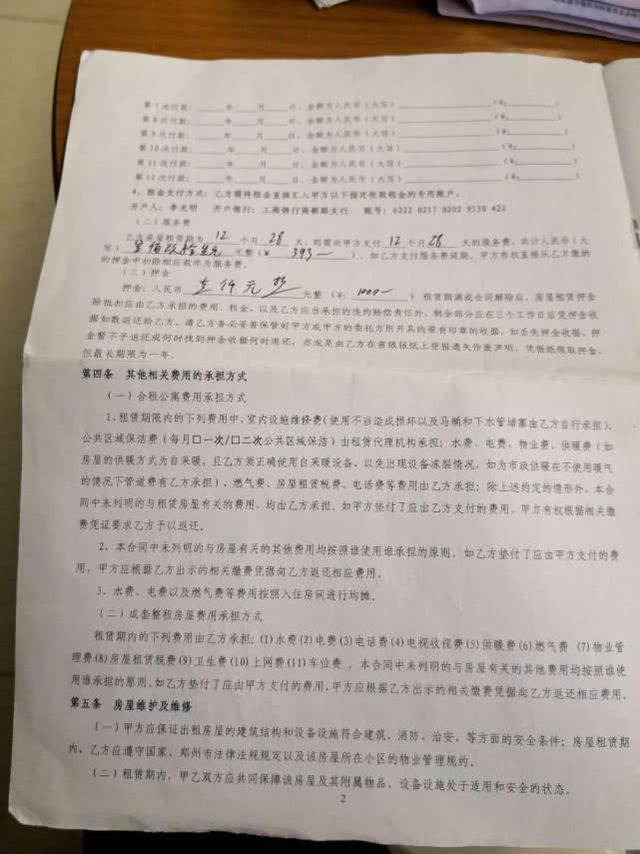 第7次付款：______年____月____日，金额为人民币（大写）______________（¥：________）
第8次付款：______年____月____日，金额为人民币（大写）______________（¥：________）
第9次付款：______年____月____日，金额为人民币（大写）______________（¥：________）
第10次付款：______年____月____日，金额为人民币（大写）______________（¥：________）
第11次付款：______年____月____日，金额为人民币（大写）______________（¥：________）
第12次付款：______年____月____日，金额为人民币（大写）______________（¥：________）
4、租金支付方式：乙方需将租金直接汇入甲方以下指定收取租金的专用账户。
开户人：李光明 开户银行：工商银行商都路支行 账号：6222 0217 0202 9530 422
（二）服务费
乙方房屋租赁期为 12 个月 28 天，则需由甲方支付 12 个月 28 天的服务费，共计人民币（大
写） 元整（¥ 393—），如乙方支付服务费延期，甲方有权直接从乙方缴纳
的押金中扣除相应款作为服务费。
（三）押金
押金：人民币 壹仟元整 元整（¥： 1000— ）租赁期满或合同解除后，房屋租赁押金
除抵扣应由乙方承担的费用、租金，以及乙方应当承担的违约赔偿责任外，剩余部分应在三个工作日后凭押金收
据如数返还给乙方。请乙方务必妥善保管好甲方或甲方的委托方所开具的带有印章的收据，如丢失押金收据，押
金暂不予退还或何时找到押金收据何时退还，亦或是由乙方在省级报纸上登报遗失作废声明，凭报纸领取押金，
但最长期限为一年。
第四条 其他相关费用的承担方式
（一）合租公寓费用承担方式
1、租赁期限内的下列费用中，室内设施维修费（使用不当造成损坏以及马桶和下水管堵塞由乙方自行承担）、
公共区域保洁费（每月口一次/口二次公共区域保洁）由租赁代理机构承担；水费、电费、物业费、供暖费（如
房屋的供暖方式为自采暖，且乙方须正确使用自采暖设备，以免出现设备冻裂情况，如为市政供暖在不使用暖气
的情况下管道费有乙方承担）、燃气费、房屋租赁税费、电话费等费用由乙方承担；除上述约定的情形外，本合
同中未列明的与租赁房屋有关的费用，均由乙方承担。如甲方垫付了应由乙方支付的费用，甲方有权根据相关缴
费凭证要求乙方予以返还。
2、本合同中未列明的与房屋有关的其他费用均按照谁使用谁承担的原则，如乙方垫付了应由甲方支付的费
用，甲方应根据乙方出示的相关缴费凭据向乙方返还相应费用。
3、水费、电费以及燃气费等费用按照入住房间进行均摊。
（二）成套整租房屋费用承担方式
租赁期内的下列费用由乙方承担：(1)水费(2)电费(3)电话费(4)电视收视费(5)供暖费(6)燃气费 (7)物业管
理费(8)房屋租赁税费(9)卫生费(10)上网费(11)车位费 ，本合同中未列明的与房屋有关的其他费用均按照谁使
用谁承担的原则。如乙方垫付了应由甲方支付的费用，甲方应根据乙方出示的相关缴费凭据向乙方返还相应费用。
第五条 房屋维护及维修
（一）甲方应保证出租房屋的建筑结构和设备设施符合建筑、消防、治安、等方面的安全条件；房屋租赁期
内，乙方应遵守国家、郑州市法律法规规定以及该房屋所在小区的物业管理规约。
（二）租赁期内，甲乙双方应共同保障该房屋及其附属物品、设备设施处于适用和安全的状态。
2